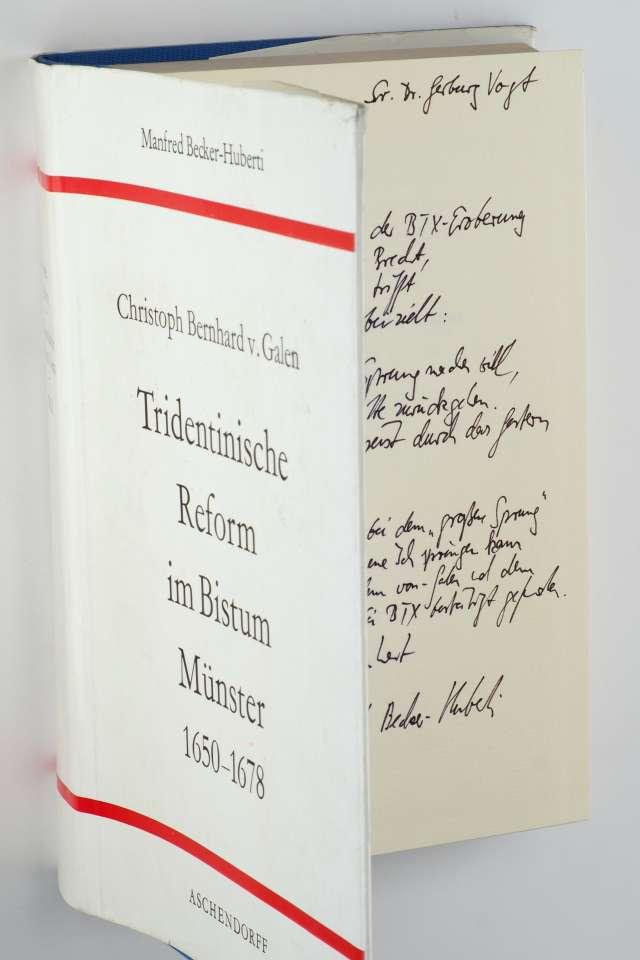 Manfred Becker-Huberti
Christoph Bernhard v. Galen
Tridentinische
Reform
im Bistum
Münster
1650–1678
ASCHENDORFF
Sr. Dr. Gerburg Vogt
der BTX-Eroberung
Brecht,
trifft
beizielt:
Sprung machen will,
zurückgehen.
durch das Gestern
bei dem „großen Sprung"
Ich springen kann
von Galen ist dem
BTX-bestätigt gefunden.
Becker-Huberti